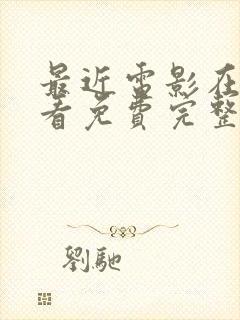 最近雷影在
看免費完整
劉馳